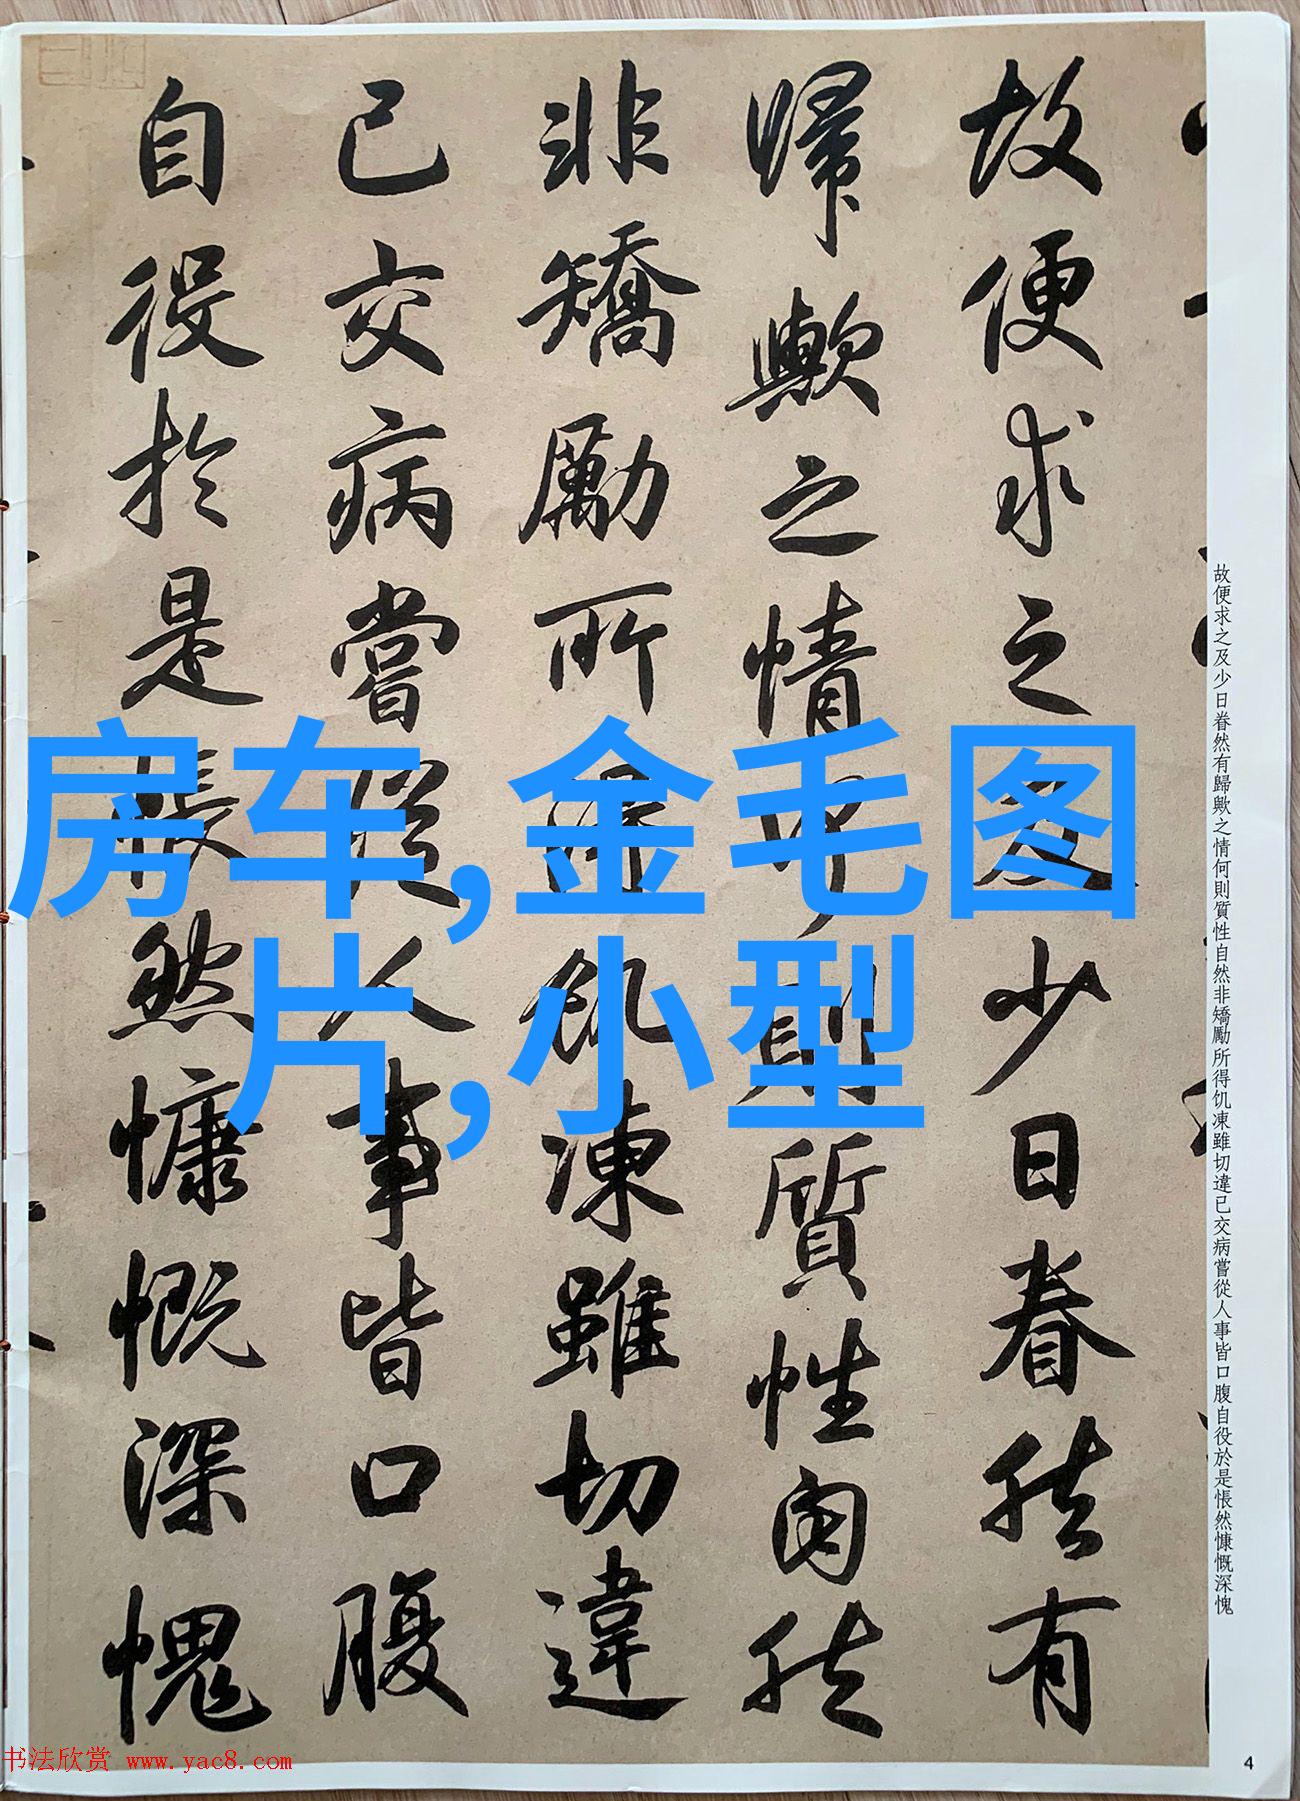 故便求之及少日眷然有
歸歟之情何則質性自然
非矯勵所得飢凍雖切違
已交病嘗從人事皆口腹
自役於是悵然慷慨深愧
房车,金毛图
片,小型
故便求之及少日眷然有歸歟之情何則質性自然非矯勵所得飢凍雖切違已交病嘗從人事皆口腹自役於是悵然慷慨深愧
书法欣赏 www.yac8.com
4